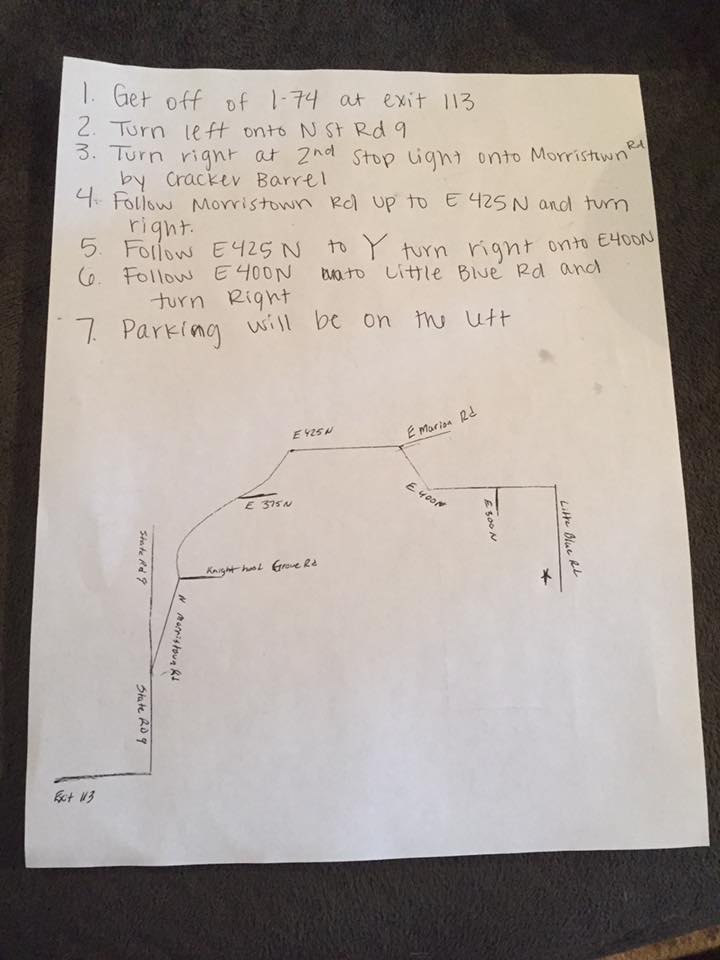 1. Get off of I-74 at exit 113
2. Turn left onto N St Rd 9
3. Turn right at 2nd stop light onto Morristown Rd
by Cracker Barrel
4. Follow Morristown Rd up to E 425 N and turn
right.
5. Follow E425 N to Y turn right onto E400N
6. Follow E400N to Little Blue Rd and
turn Right
7. Parking will be on the left
E 425 N
E Marion Rd
E 375 N
E 400N
E 300 N
Little Blue Rd
State Rd 9
Knighthood Grove Rd
N Morristown Rd
State RD 9
Exit 113